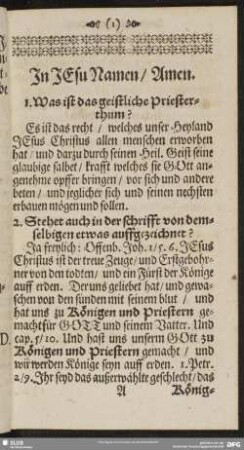 (1)
In JEsu Namen / Amen.
1. Was ist das geistliche Priester-
thum?
Es ist das recht / welches unser Heyland
JEsus Christus allen menschen erworben
hat / und darzu durch seinen Heil. Geist seine
glaubige salbet / krafft welches sie GOtt an-
genehme opffer bringen / vor sich und andere
beten / und jeglicher sich und seinen nechsten
erbauen mögen und sollen.
2. Stehet auch in der schrifft von dem-
selbigen etwas auffgezeichnet?
Ja freylich: Offenb. Joh. 1/5. 6. JEsus
Christus ist der treue Zeuge / und Erstgebohr-
ner von den todten / und ein Fürst der Könige
auff erden. Der uns geliebet hat / und gewa-
schen von den sünden mit seinem blut / und
hat uns zu Königen und Priestern ge-
macht für GOTT und seinem Vatter. Und
cap. 5/10. Und hast uns unserm GOtt zu
Königen und Priestern gemacht / und
wir werden Könige seyn auff erden. 1. Petr.
2/9. Ihr seyd das außerwählte geschlecht / das
A König-
SLUB
DFG